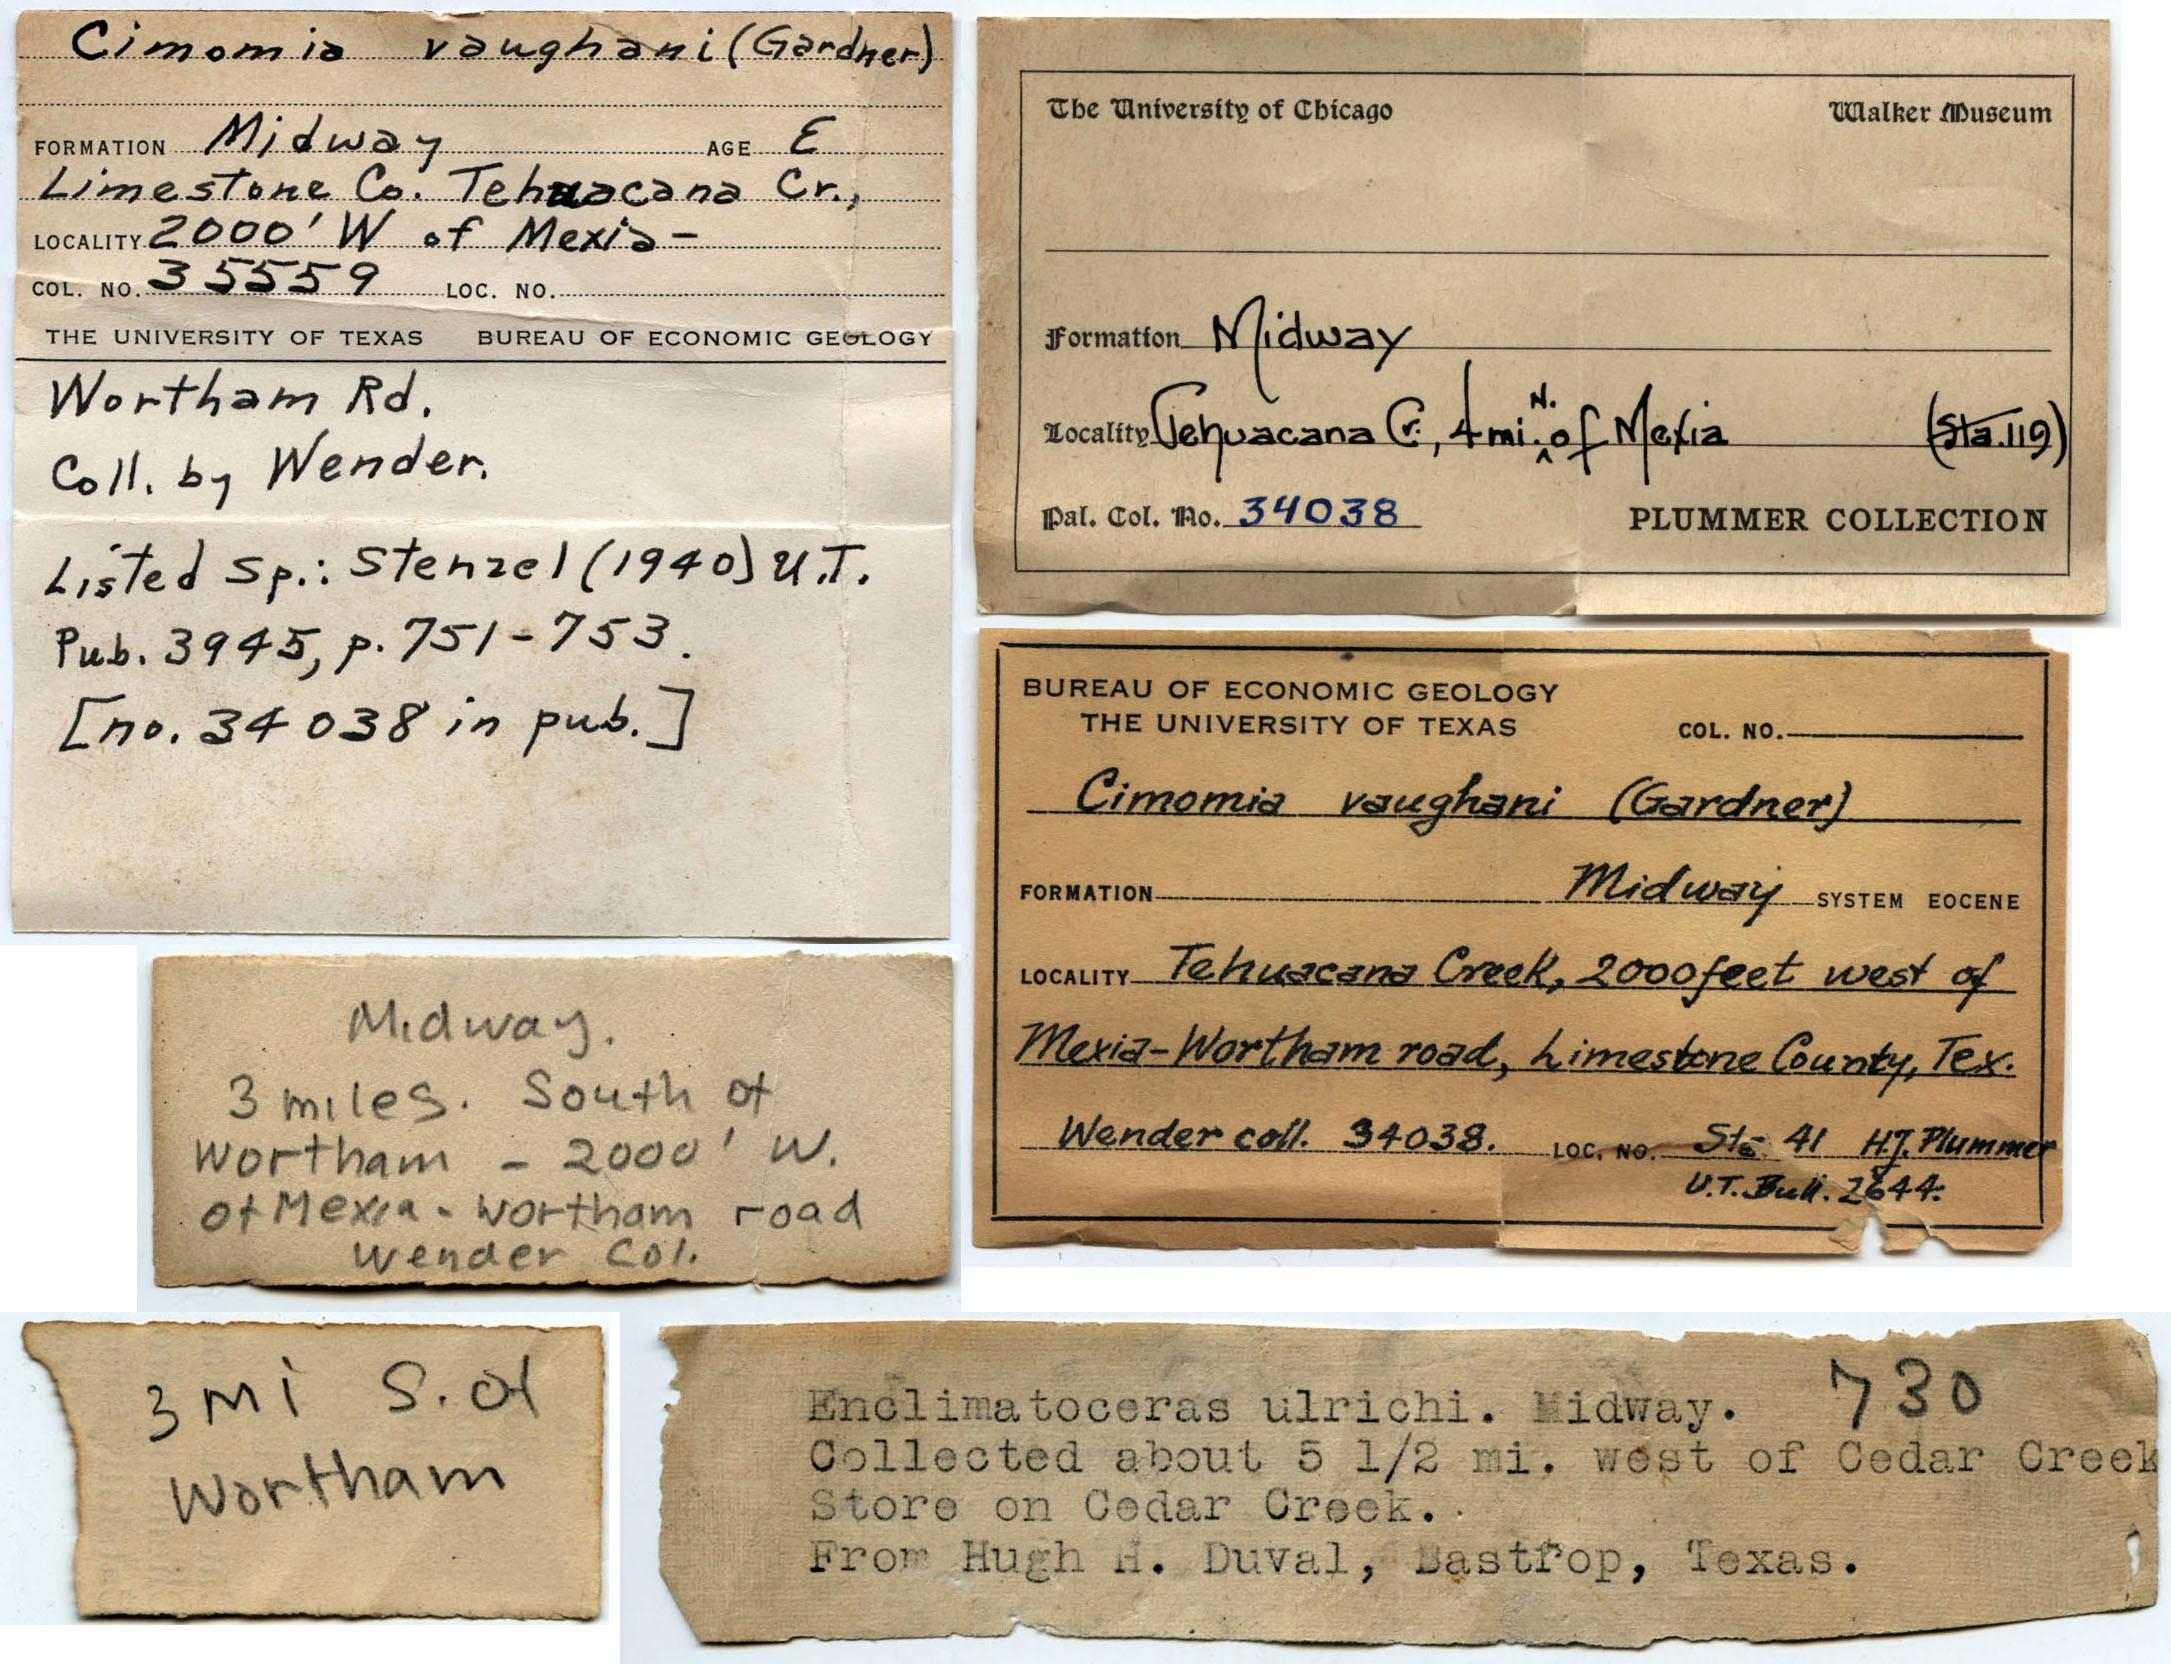 Cimomia vaughani (Gardner)
FORMATION Midway AGE E
Limestone Co. Tehuacana Cr.,
LOCALITY 2000' W of Mexia-
COL. NO. 35559 LOC. NO.
THE UNIVERSITY OF TEXAS BUREAU OF ECONOMIC GEOLOGY
Wortham Rd.
Coll. by Wender.
Listed Sp.: Stenzel (1940) U.T.
Pub. 3945, p. 751-753.
[no. 34038 in pub.]
The University of Chicago Walker Museum
Formation Midway
Locality Tehuacana Cr., 4 mi. N. of Mexia (Sta. 119)
Pal. Col. No. 34038 PLUMMER COLLECTION
BUREAU OF ECONOMIC GEOLOGY
THE UNIVERSITY OF TEXAS COL. NO.
Cimomia vaughani (Gardner)
FORMATION Midway SYSTEM EOCENE
LOCALITY Tehuacana Creek, 2000 feet west of
Mexia-Wortham road, Limestone County, Tex.
Wender coll. 34038. LOC. NO. Sta. 41 H.J. Plummer
U.T. Bull. 2644.
Midway.
3 miles. South of
Wortham - 2000' W.
of Mexia - Wortham road
Wender Col.
3 Mi S. of
Wortham
Enclimatoceras ulrichi. Midway. 730
Collected about 5 1/2 mi. west of Cedar Creek
Store on Cedar Creek.
From Hugh H. Duval, Bastrop, Texas.